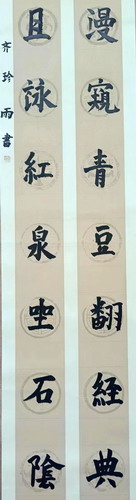 漫窺青豆翻經典
且詠紅泉坐石陰
齐玲雨書